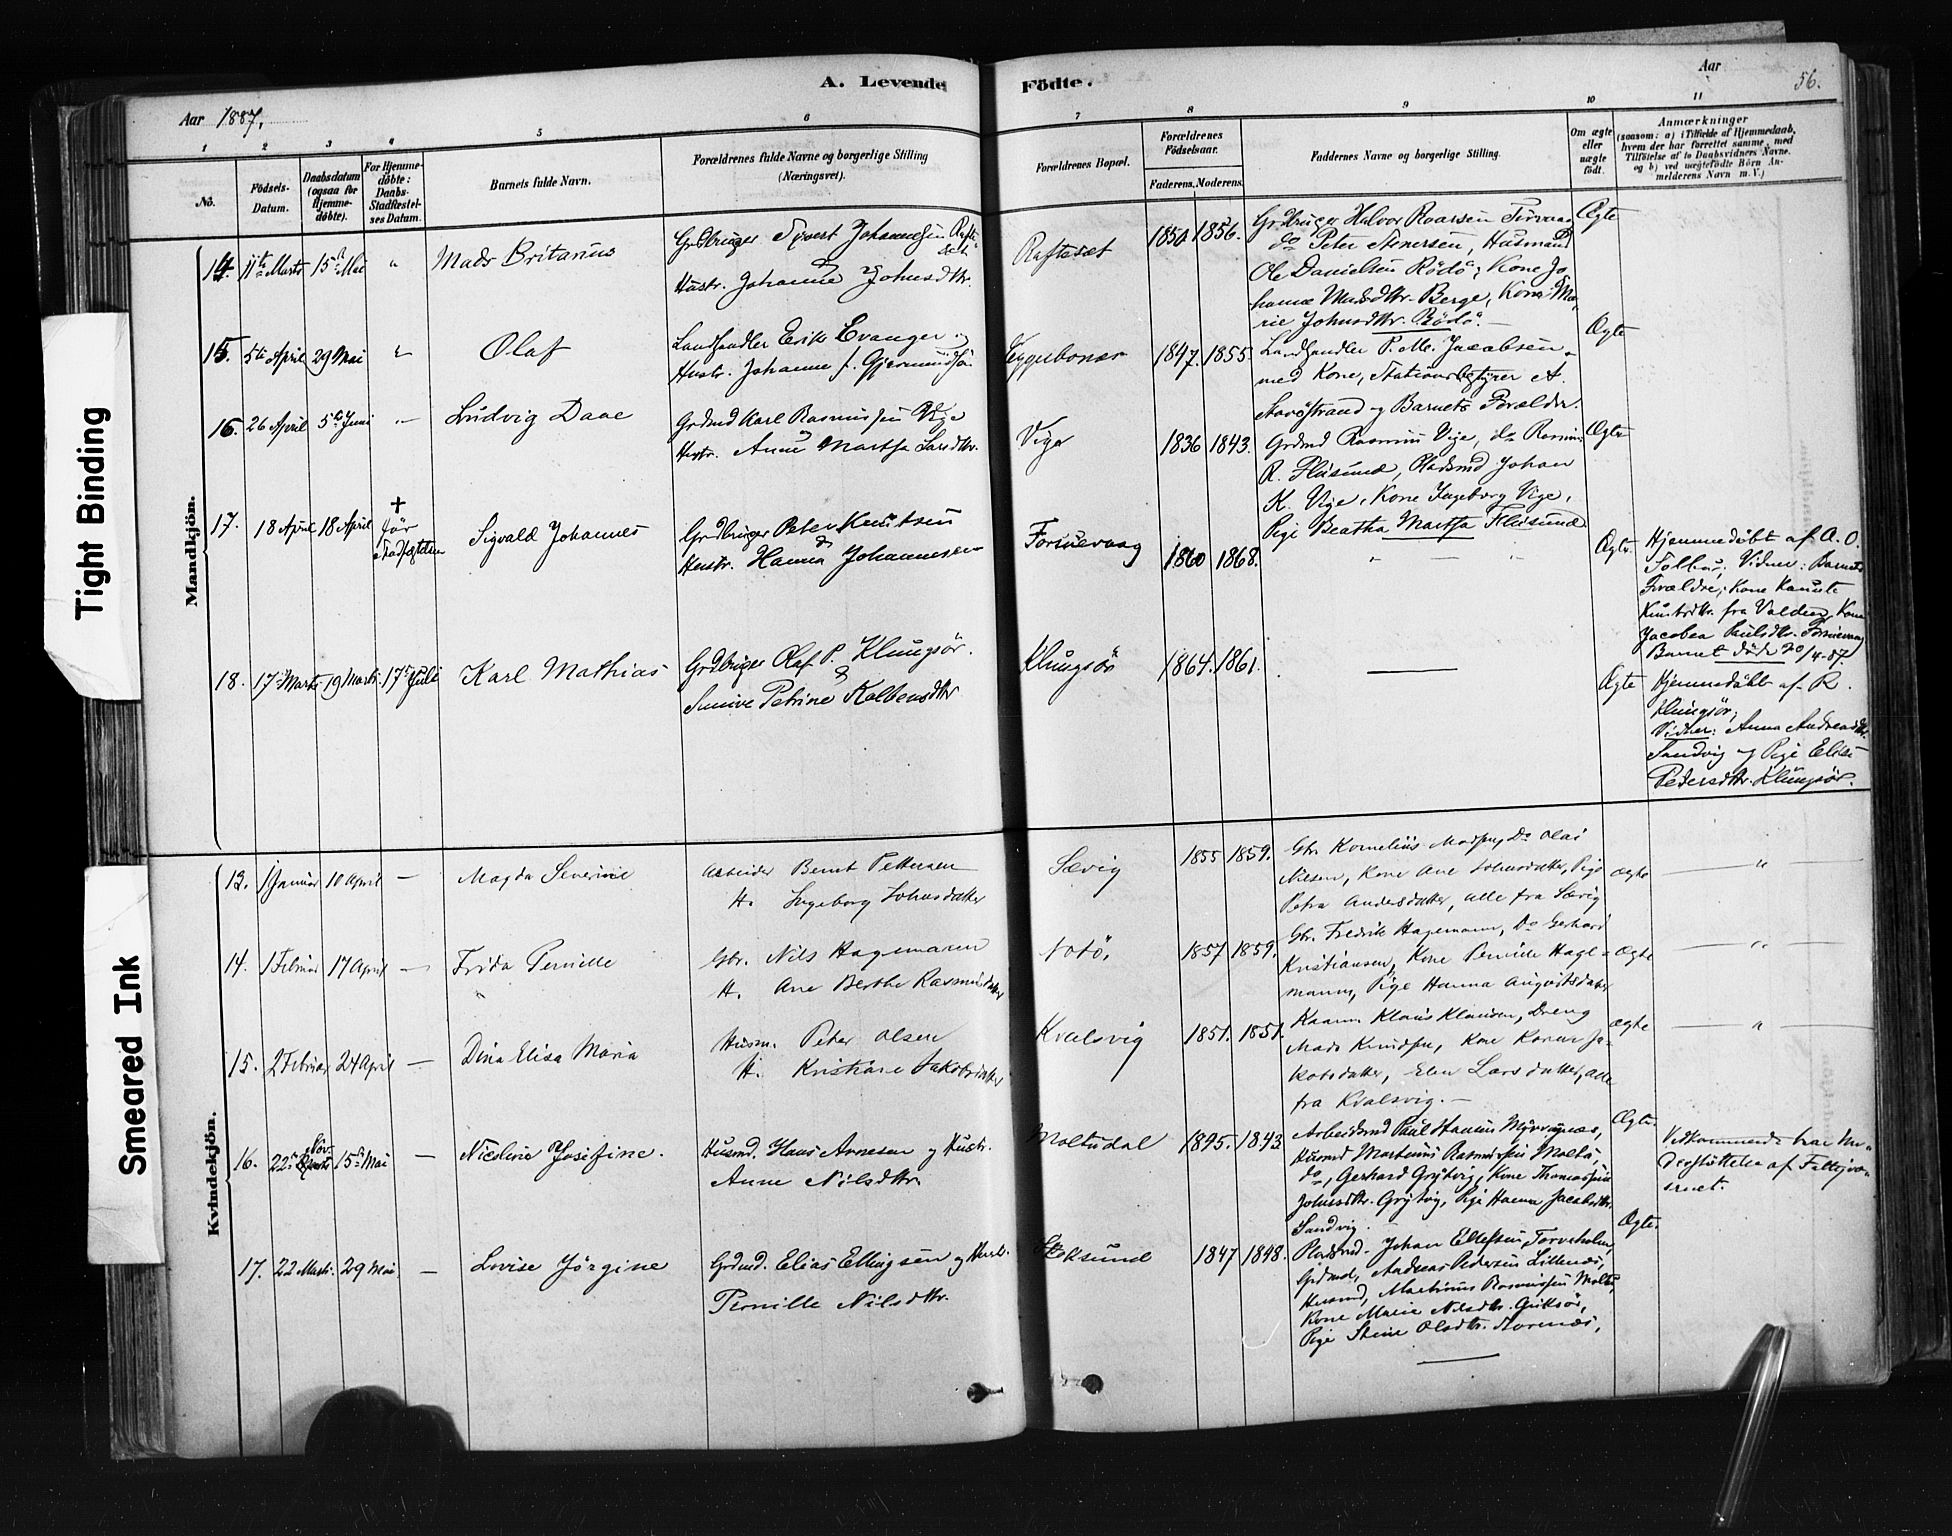 Tight Binding
Smeared Ink
A. Levende Födte.
Aar 1887.
Aar
56.
1 2 3 4 5 6 7 8 9 10 11
No.
Födsels-
Datum.
Daabsdatum
(ogsaa for
Hjemme-
döbte).
For Hjemme-
döbte:
Daabs-
Stadfæstel-
ses Datum.
Barnets fulde Navn.
Forældrenes fulde Navne og borgerlige Stilling
(Næringsvei).
Forældrenes Bopæl.
Forældrenes
Födselsaar.
Faderens. Moderens.
Faddernes Navne og borgerlige Stilling.
Om ægte
eller
uægte
födt.
Anmærkninger
(saasom: a) i Tilfælde af Hjemmedaab,
hvem der har forrettet samme, med
Tilföielse af to Daabsvidners Navne.
og b) ved uægtefödte Börn An-
melderens Navn m. V.)
Mandkjön.
14. 11te Marts 15de Mai " Mads Britanius
Grdbruger Sivert Johannesen Rafte-
sæt
Hustr. Johanne Johnsdtr.
Raftesæt 1850 1856.
Grdbruger Halvor Roarsen
do Peter Stenersen, Husmand
Ole Danielsen Rödö, Kone Jo-
hanne Madsdtr. Berge, Kone Ma-
rie Johnsdtr. Rödö.
Ægte
15. 5te April 29 Mai " Olaf
Landhandler Erik Evanger og
Hustr. Johanne f. Gjermundsön
1847. 1855.
Landhandler P. M. Jacobsen
med Kone, Stationsbestyrer A.
og Barnets Forældre.
Ægte
16. 26 April 5te Juni " Ludvig Daae
Grdmd Karl Rasmussen Vige
Hustr. Anne Martha Larsdtr.
Vige 1836 1843.
Grdmd Rasmus Vige, do Rasmus
R. Flusund, Pladsmd Johan
K. Vige, Kone Ingeborg Vige,
Pige Beatha Martha Flusund
Ægte
17. 18 April 18 April † för Stadfæstelsen Sigvald Johannes
Grdbruger Peter Knutsen
Hustr. Hanna Johannesen
Fosnevaag 1860 1868. " "
Ægte
Hjemmedöbt af A. O.
Tolbas; Vidner: Barnets
Forældre, Kone Kanute
Knutsdtr. fra Volden, Kone
Jacobea Paulsdtr. Fosnevaag
Barnet döde 20/4-87.
18. 17 Marts 19 Marts 17de Juli Karl Mathias
Grdbruger Olaf P. Klungsör.
&
Sunive Petrine Kolbensdtr
Klungsör 1864. 1861.
Ægte
Hjemmedöbt af R.
Klungsör;
Vidner: Anna Andreasdtr.
Sandvig og Pige Elise
Pedersdtr. Klungsör.
Kvindekjön.
13. 1 Januar 10 April — Magda Severine
Arbeider Bernt Pettersen
H. Ingeborg Johnsdatter
Sævig 1855 1859.
Gbr. Kornelius Madsen, Do Olai
Nilsen, Kone Ane Johnsdatter, Pige
Petra Andersdatter, alle fra Sævig
ægte "
14. 1 Februar 17 April — Frida Pernille
Gbr. Nils Hagemann
H. Ane Berthe Rasmusdatter
Notö. 1857 1859.
Gbr. Fredrik Hagemann, Do Gerhard
Kristiansen, Kone Pernille Hage-
mann, Pige Hanna Augustsdatter
ægte "
15. 2 Februar 24 April — Dina Elisa Maria
Husm. Peter Olsen
H. Kristiane Jakobsdatter
Kvalsvig 1851. 1851.
Klaus Klausen, Dreng
Mads Knudsen, Kone Karen Ja-
kobsdatter, Elen Larsdatter, alle
fra Kvalsvig. —
ægte "
16. 22de Marts 15de Mai — Nicoline Josefine.
Husmd. Hans Arnesen og Hustr.
Anne Nilsdtr.
Moltudal 1895. 1843
Arbeidsmd Paul Hansen Myrvagnæs,
Husmd Martinus Rasmussen Moltu,
do, Gerhard Grytvig, Kone Thomasine
Johnsdtr. Grytvig, Pige Hanna Jacobsdtr.
Sandvig.
Ægte.
Vedkommende har Un-
derstöttelse af Fattigvæ-
senet.
17. 22 Marts. 29 Mai — Lovise Jörgine
Grdmd. Elias Ellingsen og Hustr.
Pernille Nilsdtr.
1847 1848.
Pladsmd. Johan Ellefsen Torvholm,
Grdmd, Andreas Pedersen Lillenæs,
Husmd, Martinus Rasmussen Moltu,
Kone Marie Nilsdtr.
Pige Stine Olsdtr.
Ægte.